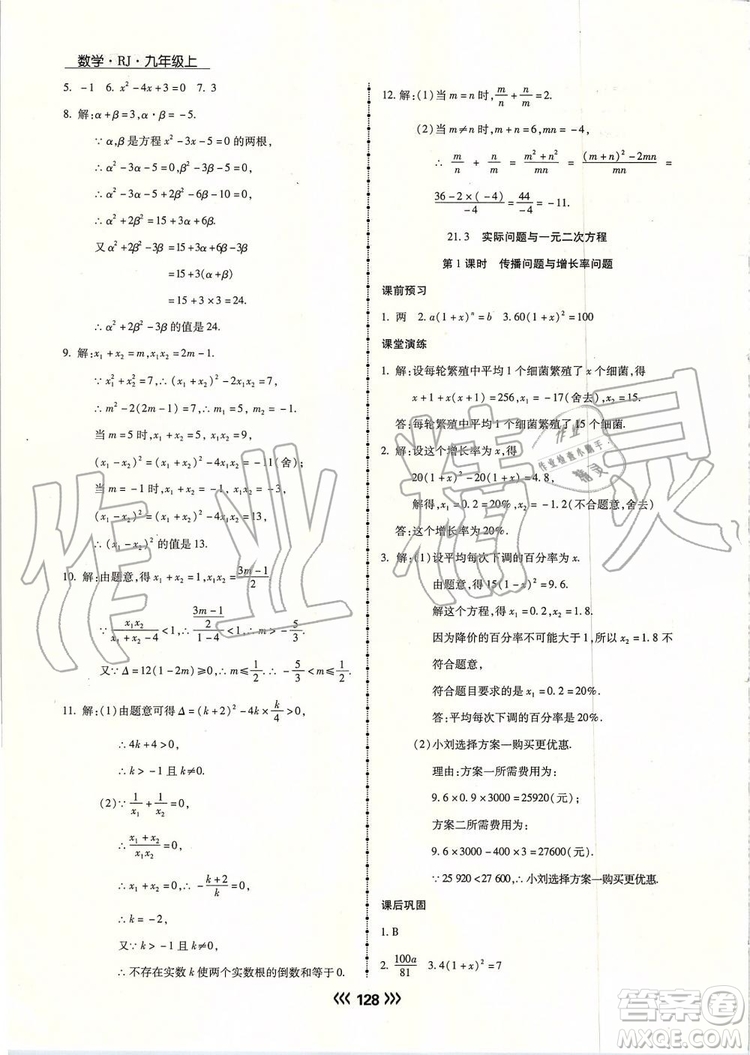 数学·RJ·九年级上
5. -1 6. x²-4x+3=0 7. 3
8. 解:α+β=3,α·β=-5.
∵α,β是方程x²-3x-5=0的两根,
∴α²-3α-5=0,β²-3β-5=0,
∴α²-3α-5+2β²-6β-10=0,
∴α²+2β²=15+3α+6β.
又α²+2β²-3β=15+3α+3β
=15+3(α+β)
=15+3×3=24,
∴α²+2β²-3β的值是24.
9. 解:x₁+x₂=m,x₁x₂=2m-1.
∵x₁²+x₂²=7,∴(x₁+x₂)²-2x₁x₂=7,
∴m²-2(2m-1)=7,∴m=5或m=-1.
当m=5时,x₁+x₂=5,x₁x₂=9,
(x₁-x₂)²=(x₁+x₂)²-4x₁x₂=-11(舍);
当m=-1时,x₁+x₂=-1,x₁x₂=-3,
(x₁-x₂)²=(x₁+x₂)²-4x₁x₂=13.
∴(x₁-x₂)²的值是13.
10. 解:由题意,得x₁+x₂=1,x₁x₂=(3m-1)/2
∵x₁x₂/(x₁+x₂-4)<1,∴((3m-1)/2)/(1-4)<1,∴m>-5/3
又∵Δ=12(1-2m)≥0,∴m≤1/2.∴-5/3<m≤1/2.
11. 解:(1)由题意可得Δ=(k+2)²-4k×k/4>0,
∴4k+4>0,
∴k>-1且k≠0.
(2)∵1/x₁+1/x₂=0,
∴(x₁+x₂)/(x₁x₂)=0,
∴-(k+2)/k=0,
∴k=-2,
又∵k>-1且k≠0,
∴不存在实数k使两个实数根的倒数和等于0.
12. 解:(1)当m=n时,m/n+n/m=2.
(2)当m≠n时,m+n=6,mn=-4,
∴m/n+n/m=(m²+n²)/mn=((m+n)²-2mn)/mn=
(36-2×(-4))/(-4)=44/(-4)=-11.
21.3 实际问题与一元二次方程
第1课时 传播问题与增长率问题
课前预习
1. 两 2. a(1+x)ⁿ=b 3. 60(1+x)²=100
课堂演练
1. 解:设每轮繁殖中平均1个细菌繁殖了x个细菌,得
x+1+x(x+1)=256,x₁=-17(舍去),x₂=15.
答:每轮繁殖中平均1个细菌繁殖了15个细菌.
2. 解:设这个增长率为x,得
20(1+x)²-20(1+x)=4.8,
解得,x₁=0.2=20%,x₂=-1.2(不合题意,舍去)
答:这个增长率为20%.
3. 解:(1)设平均每次下调的百分率为x.
由题意,得15(1-x)²=9.6.
解这个方程,得x₁=0.2,x₂=1.8.
因为降价的百分率不可能大于1,所以x₂=1.8不
符合题意,
符合题目要求的是x₁=0.2=20%.
答:平均每次下调的百分率是20%.
(2)小刘选择方案一购买更优惠.
理由:方案一所需费用为:
9.6×0.9×3000=25920(元);
方案二所需费用为:
9.6×3000-400×3=27600(元);
∵25 920<27 600,∴小刘选择方案一购买更优惠.
课后巩固
1. B
2. 100a/81 3. 4(1+x)²=7
128
作业精灵
作业
作业检查小助手
精灵
答案圈
MXQE.COM